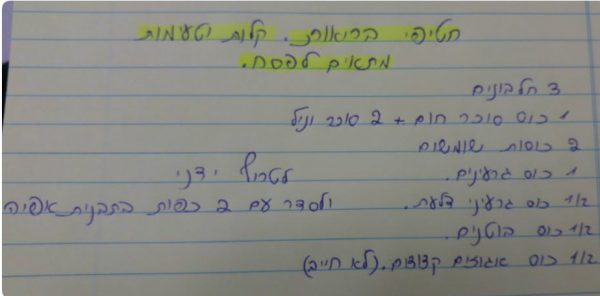 חטיפי בריאות. קלות וטעימות
מתאים לפסח.
3 חלבונים
1 כוס סוכר חום + 2 סוכר וניל
2 כוסות שומשום
1 כוס גרעינים. לטרוף ידני
1/2 כוס גרעיני דלעת. ולסדר עם 2 כפות בתבנית אפיה
1/2 כוס בוטנים.
1/2 כוס אגוזים קצוצים. (לא חייב)